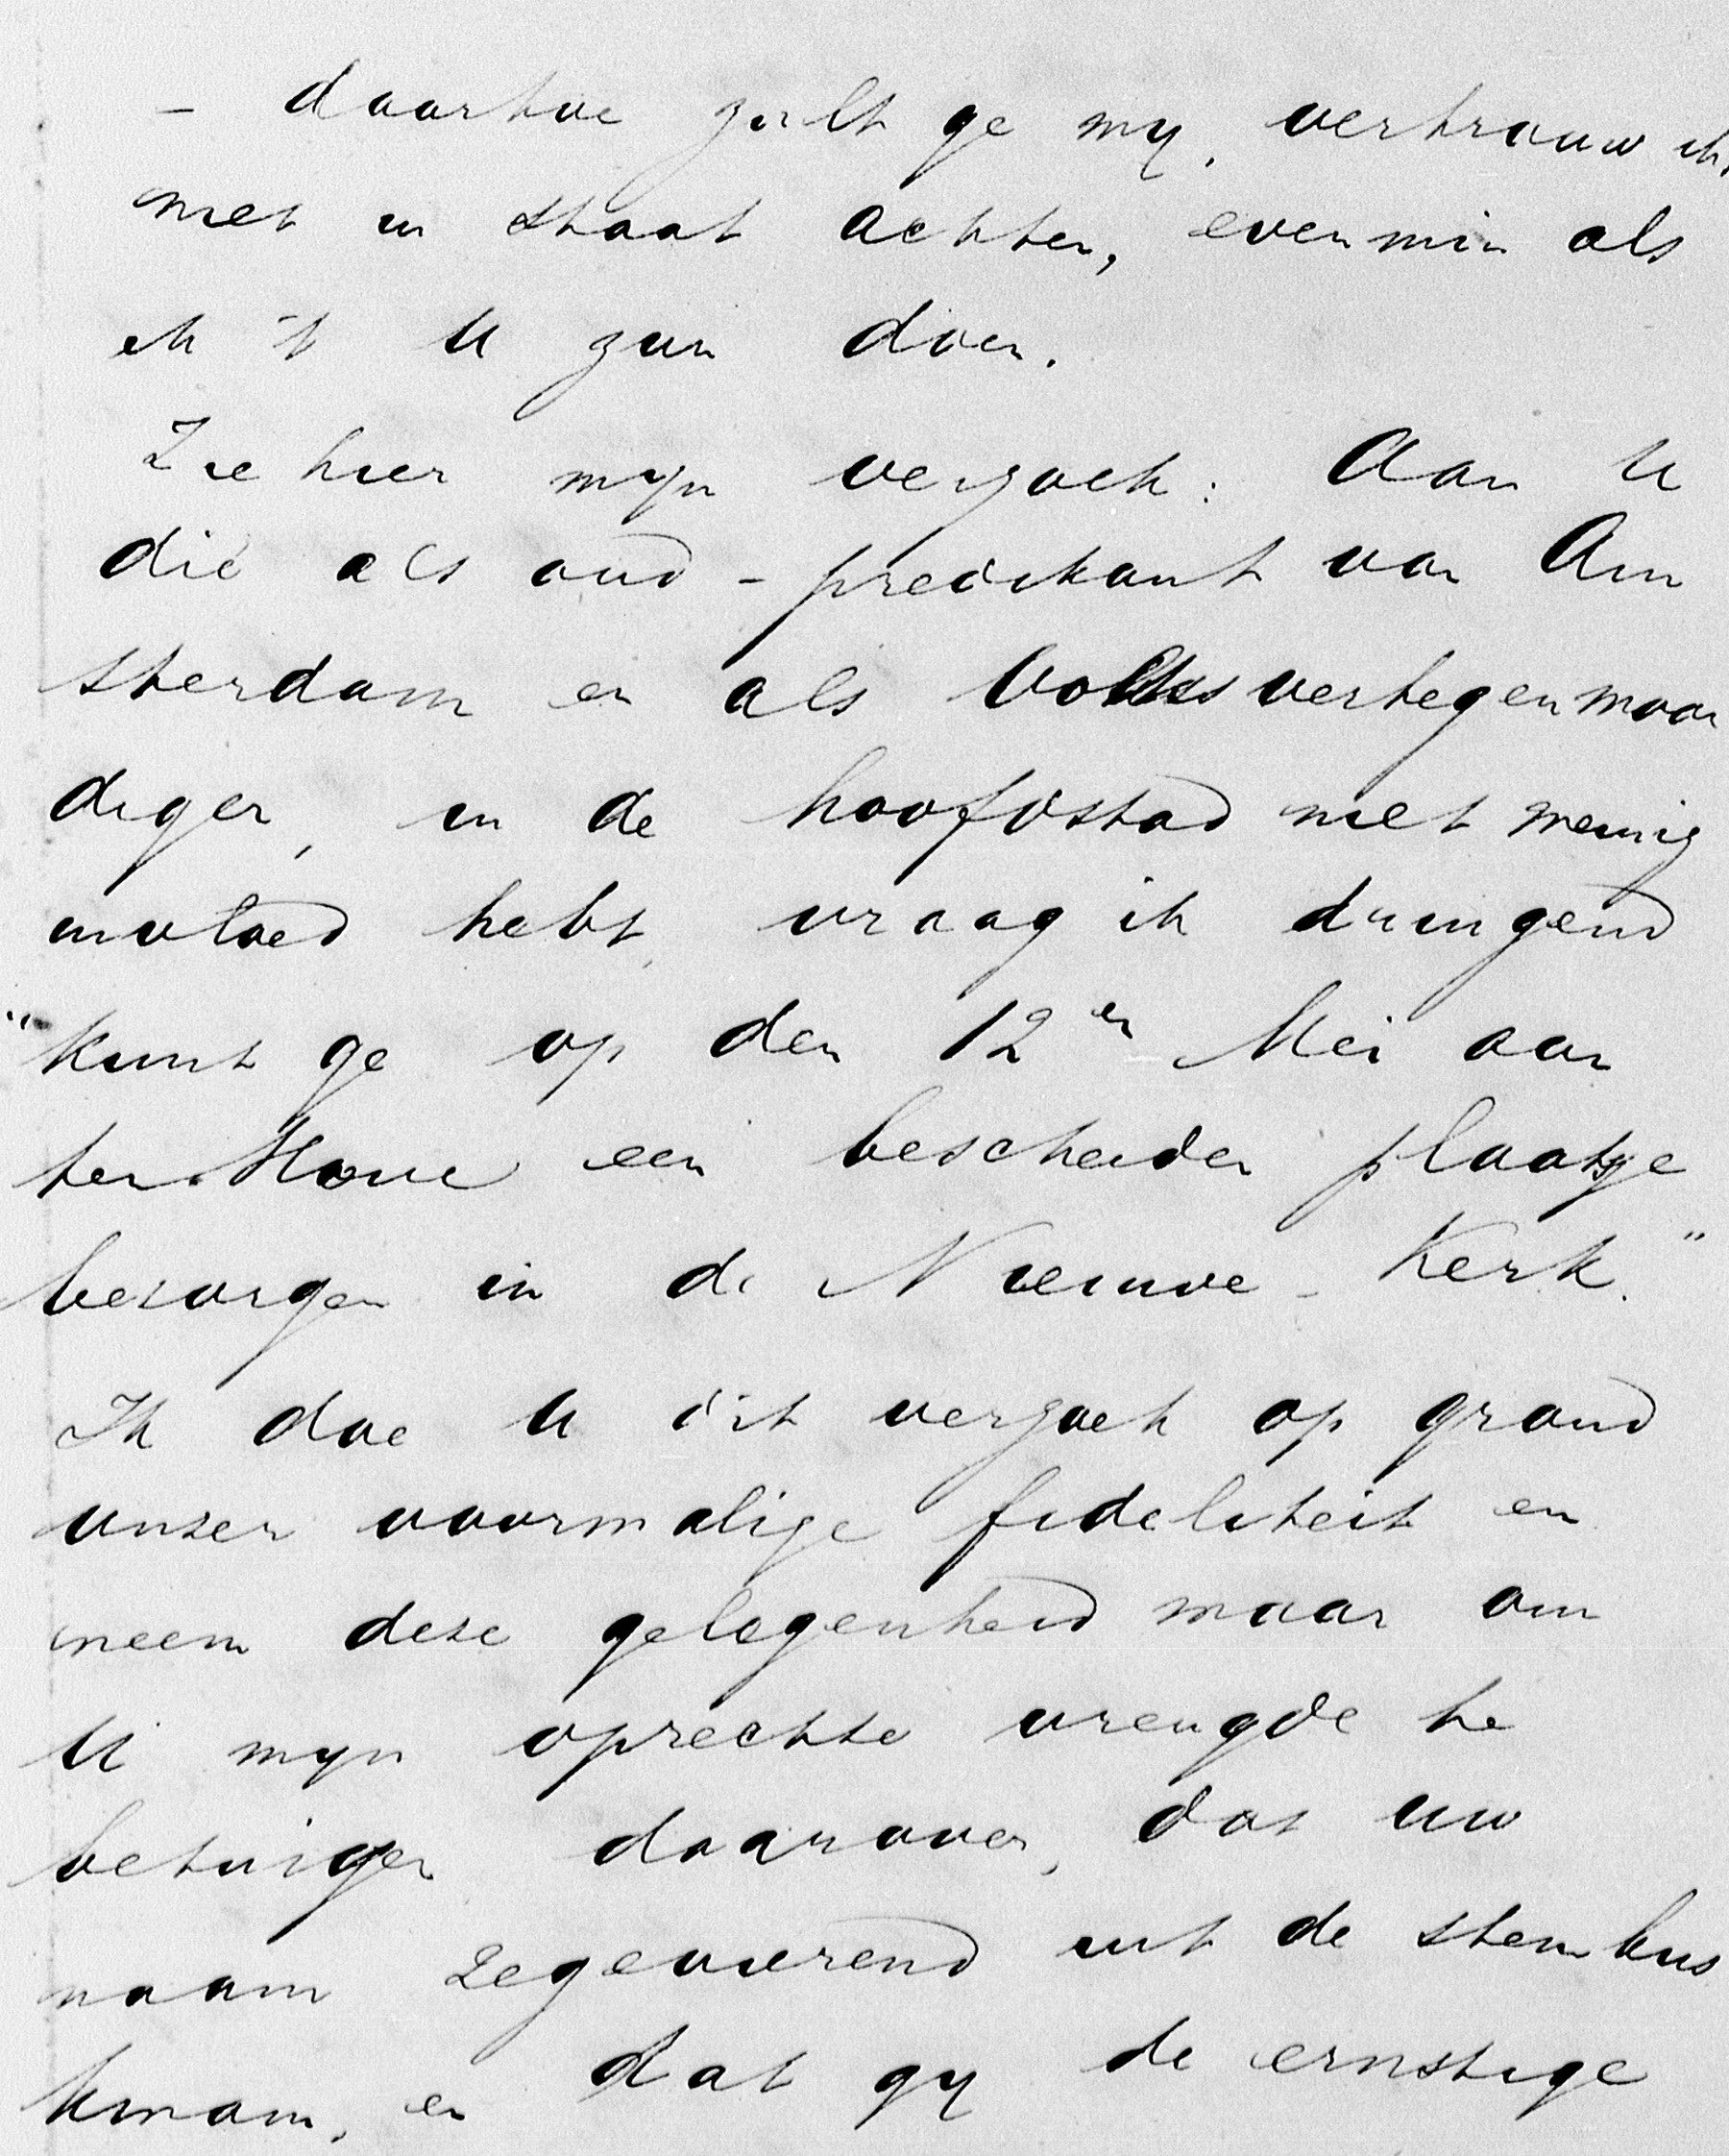 - daartoe zult ge my, vertrouw ik,
niet in staat achten, evenmin als
ik 't U zou doen.
Zie hier mijn verzoek: Aan U
die als oud-predikant van Am
sterdam en als Volksvertegenwoor
diger, in de hoofdstad niet weinig
invloed hebt, vraag ik dringend
"kunt ge op den 12en Mei aan
ten Hove een bescheiden plaatsje
bezorgen in de Nieuwe-Kerk."
Ik doe U dit verzoek op grond
onzer voormalige fideliteit en
neem deze gelegenheid waar om
U mijn oprechte vreugde te
betuigen daarover, dat uw
naam zegevierend uit de stembus
kwam, en dat gy de ernstige